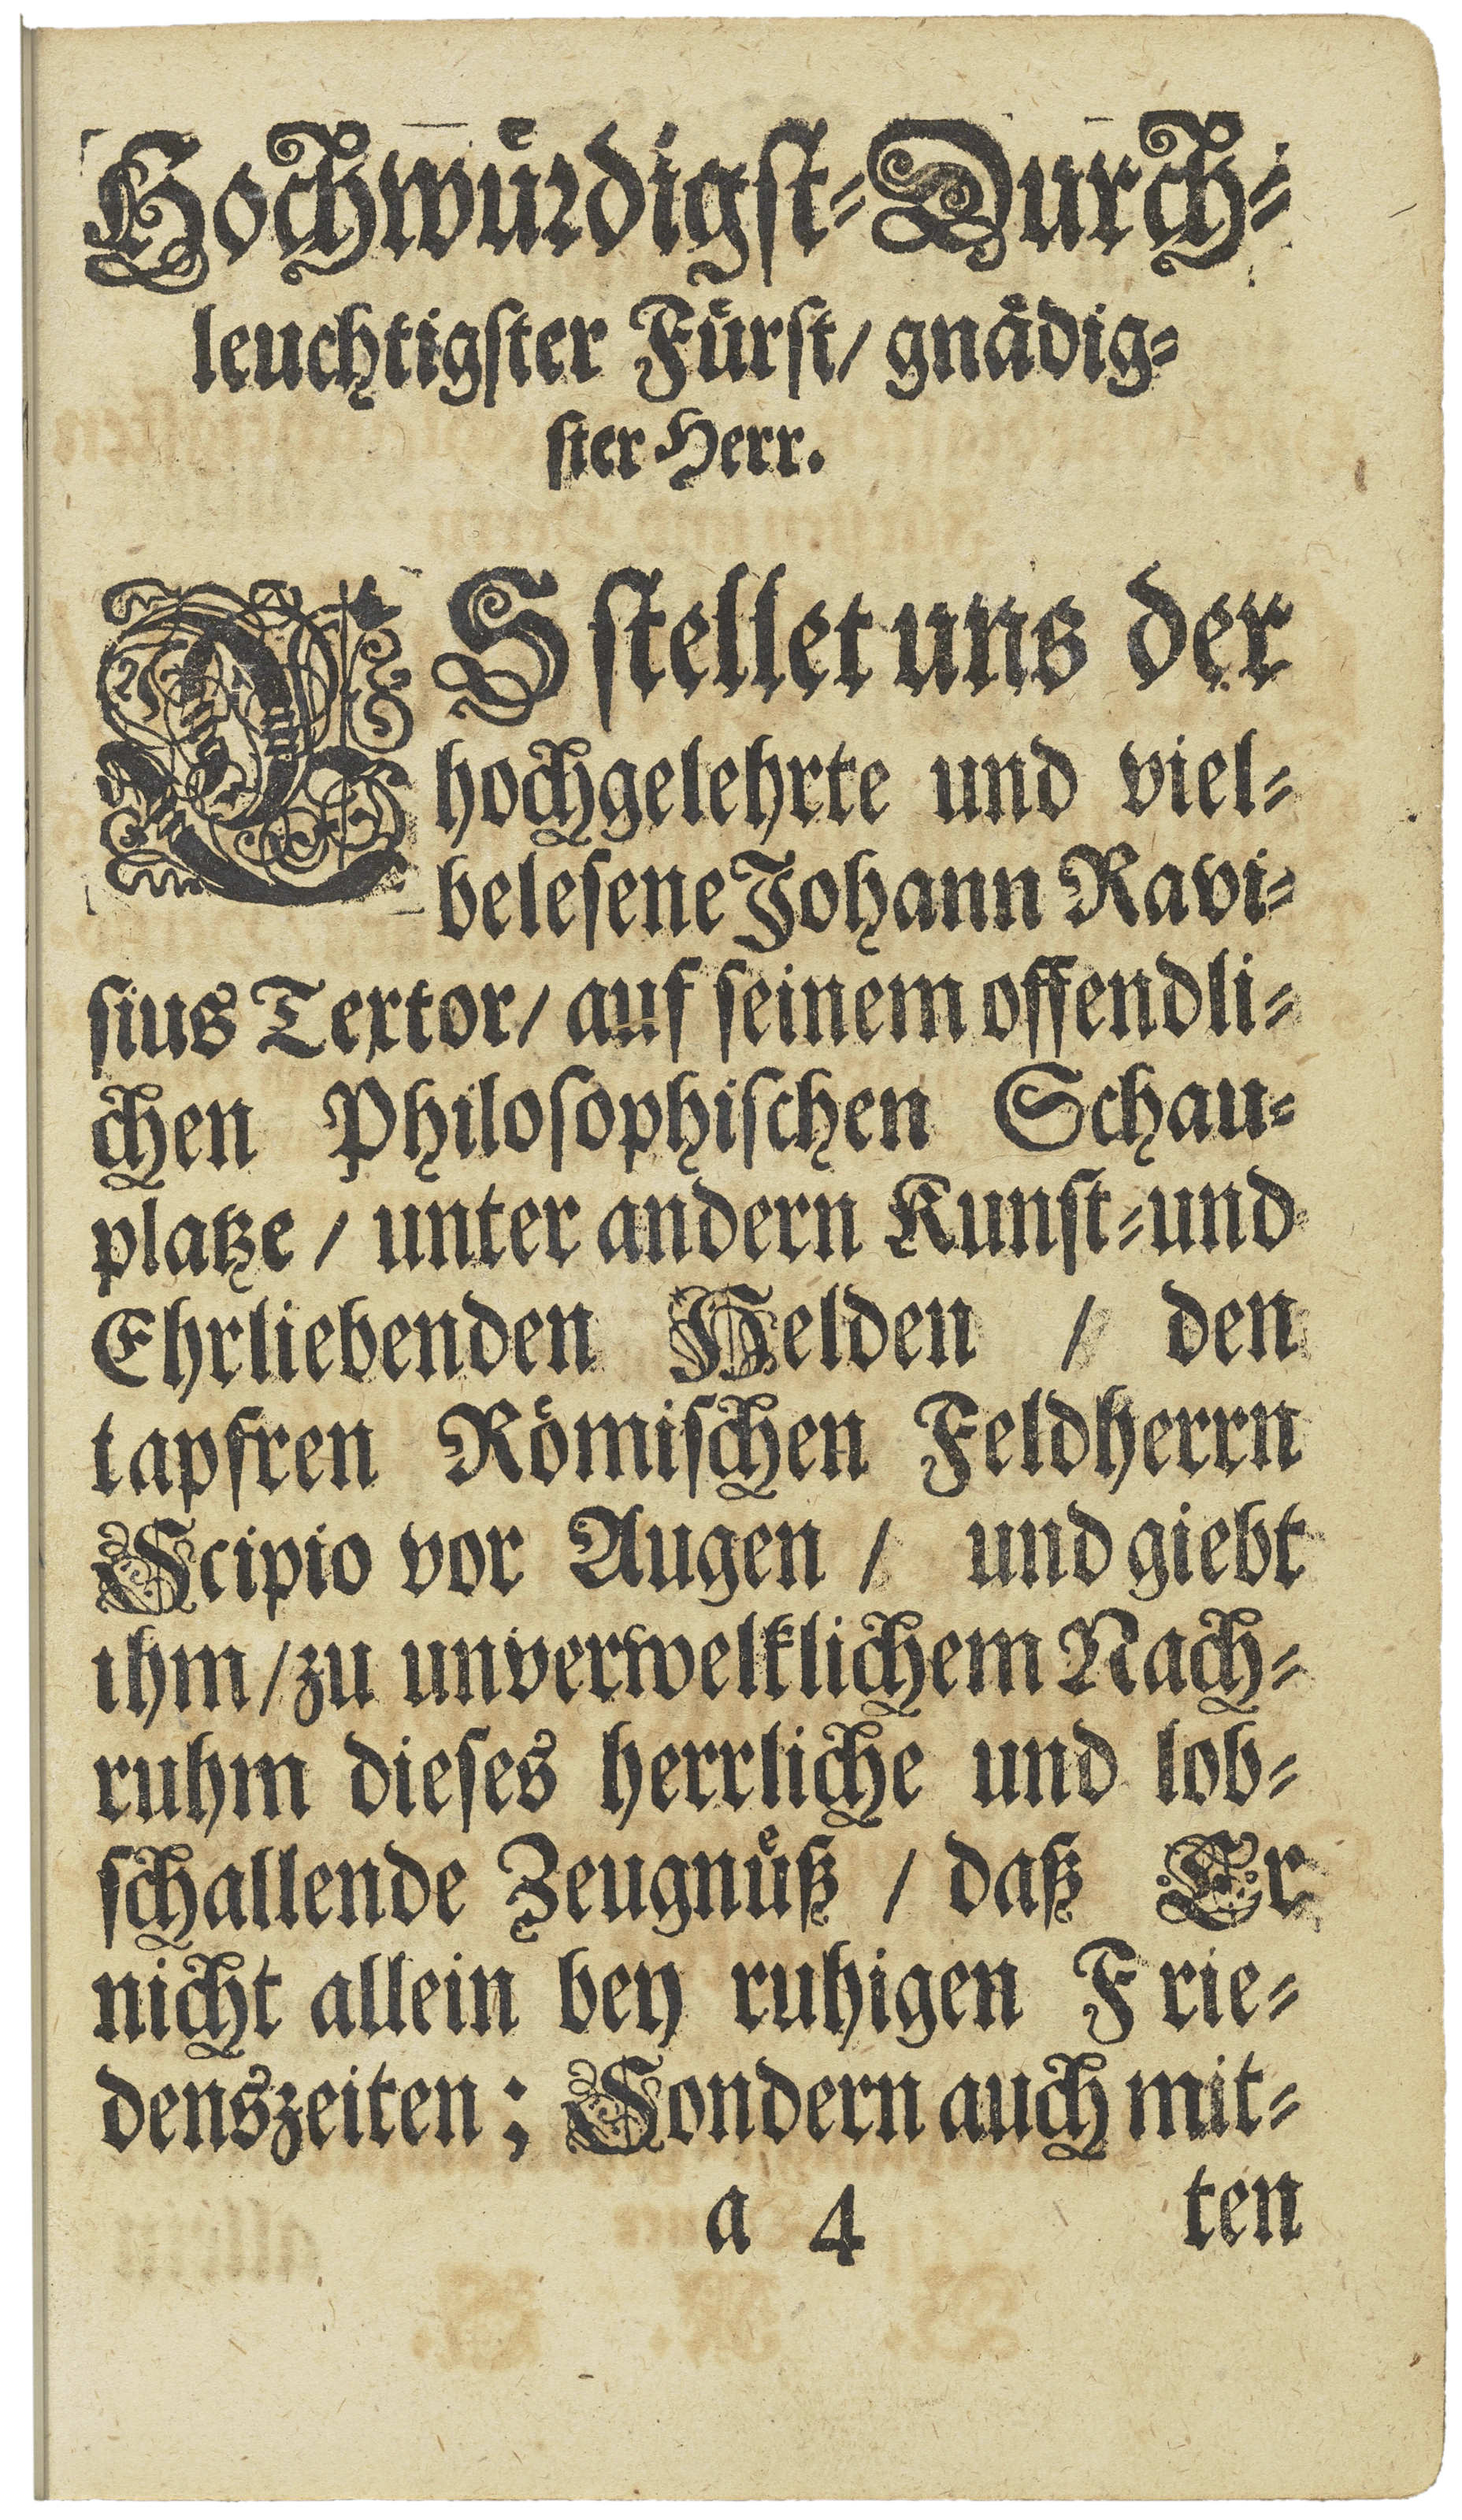 Hochwuͤrdigſt-Durch-
leuchtigſter Fuͤrſt/ gnaͤdig-
ſter Herr.
ES ſtellet uns der
hochgelehrte und viel-
beleſene Johann Ravi-
ſius Textor/ auf ſeinem offendli-
chen Philoſophiſchen Schau-
platze / unter andern Kunſt-und
Ehrliebenden Helden / den
tapfren Römiſchen Feldherrn
Scipio vor Augen / und giebt
ihm/zu unverwelklichem Nach-
ruhm dieſes herrliche und lob-
ſchallende Zeugnuͤß / daß Er
nicht allein bey ruhigen Frie-
denszeiten; Sondern auch mit-
a 4 ten